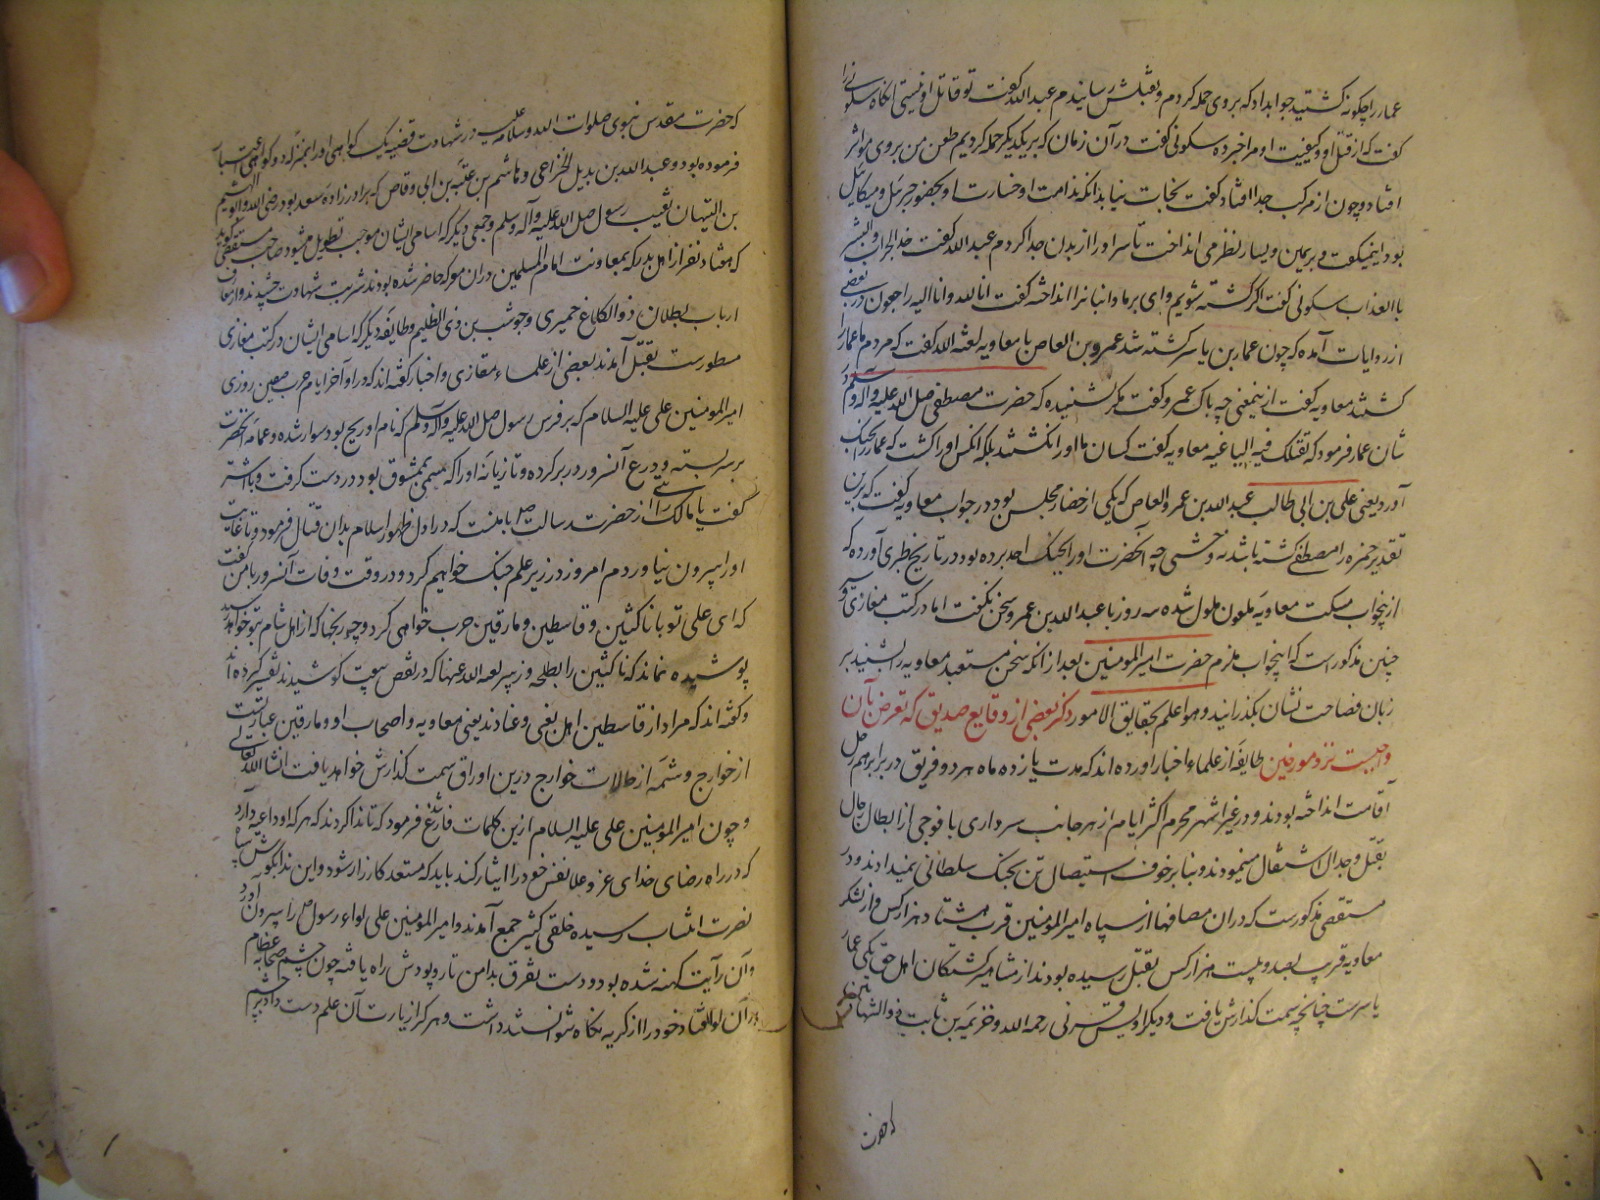 عمار را چگونه کشتید جواب داد که بر وی حمله کردم و بقتلش رسانیدم عبدالله گفت تو قاتل او نیستی آنگاه سکونی را
گفت که از قتل او و کیفیت او مرا خبر ده سکونی گفت در آن زمان که بر یکدیگر حمله کردیم طعن من بر وی مؤثر
افتاد و چون از مرکب جدا افتاد گفت نجات نیابد آنکه ندامت او خسارت او بحضور جبرئیل و میکائیل
بود اینمیگفت و بر یمین و یسار نظر می انداخت تا سر او را از بدن جدا کردم عبدالله گفت خذ الحراب والبشر
بالعذاب سکونی گفت اگر کشته شویم وای بر ما و انبانرا انداخته گفت انا لله و انا الیه راجعون در بعضی
از روایات آمده که چون عمار بن یاسر کشته شد عمرو بن العاص با معاویه لعنه الله گفت که مردم ما عمار را
کشتند معاویه گفت ازینمعنی چه باک عمرو گفت مگر نشنیده که حضرت مصطفی صلی الله علیه و آله وسلم در
شان عمار فرمود که تقتلک فیه الباغیه معاویه گفت کسان ما او را نکشتند بلکه آنکس او را کشت که عمار را بجنک
آورد یعنی علی بن ابی طالب عبدالله بن عمرو العاص که یکی از حضار مجلس بود در جواب معاویه گفت که برین
تقدیر حمزه را مصطفی کشته باشد نه وحشی چه آنحضرت او را بجنک احد برده بود در تاریخ طبری آورده که
ازینجواب مسکت معاویه ملعون ملول شده سه روز با عبدالله بن عمرو سخن نگفت اما در کتب مغازی و سیر
چنین مذکور است که اینجواب ملزم حضرت امیرالمومنین بعد از آنکه سخن مستبعد معاویه را شنید بر
زبان فصاحت نشان بگذرانید و هو اعلم بحقایق الامور ذکر بعضی از وقایع صدیق که تعرض بآن
واجبست نزد مورخین طایفه از علماء اخبار آورده اند که مدت یازده ماه هر دو فریق در برابر هم رحل
اقامت انداخته بودند و در غیر اشهر محرم اکثر ایام از هر جانب سرداری با فوجی از ابطال رجال
بقتل و جدال اشتغال مینمودند و بنابر خوف استیصال تن بجنک سلطانی نمیدادند و در
مستقصی مذکورست که در ان مصافها از سپاه امیرالمومنین قرب هشتاد هزار کس و از لشکر
معاویه قریب بصد و بیست هزار کس بقتل رسیده بودند از مشاهیر کشتکان اهل حق یکی عمار
یاسرست چنانچه سمت گذارش یافت و دیگر اویس قرنی رحمه الله و خزیمه بن ثابت ذوالشهادتین
که حضرت مقدس نبوی صلوات الله وسلامه علیه در شهادت قضیه یک گواهی او را بمنزله دو گواهی اعتبار
فرموده بود و عبدالله بن بدیل الخزاعی و هاشم بن عتبه بن ابی وقاص که برادرزاده سعد بود رضی الله و ابو الهیثم
بن التیهان نقیب رسول صلی الله علیه و آله وسلم و جمعی دیگر که اسامی ایشان موجب تطویل میشود صاحب مستقصی گوید
که هفتاد نفر از اهل بدر که بمعاونت امام المسلمین دران معرکه حاضر شده بودند شربت شهادت چشیدند و از معارف
ارباب بطلان ذو الکلاغ حمیری و حوشب بن ذی الظلیم و طایفه دیگر که اسامی ایشان در کتب مغازی
مسطورست بقتل آمدند بعضی از علماء مغازی و اخبار گفته اند که در اواخر ایام حرب صفین روزی
امیرالمومنین علی علیه السلام که بر فرس رسول صلی الله علیه وآله وسلم که نام او ریح بود سوار شده و عمامه آنحضرت
بر سر بسته و درع آنسرور در بر کرده و تازیانه او را که مسمی بممشوق بود در دست گرفت و با شتر
گفت یا مالک رایتی از حضرت رسالت ص با منست که در اول ظهور اسلام بدان قتال فرمود و تا غایت
او را بیرون نیاوردم امروز در زیر علم جنک خواهیم کرد و در وقت وفات آنسرور با من گفت
که ای علی تو با ناکثین و قاسطین و مارقین حرب خواهی کرد و چه رنجها که از اهل شام بتو خواهد رسید
پوشیده نماند که ناکثین را بطلحه و زبیر لعنه الله عنهما که در نقض بیعت کوشیدند تفسیر کرده اند
و گفته اند که مراد از قاسطین اهل بغی و عنادند یعنی معاویه و اصحاب او و مارقین عبارتست
از خوارج و شمه از حالات خوارج درین اوراق سمت گذارش خواهد یافت انشا الله تعالی
و چون امیرالمومنین علی علیه السلام ازین کلمات فارغ شد فرمود که تا ندا کردند که هر که او داعیه دارد
که در راه رضای خدای عز و علا نفس خود را ایثار کند باید که مستعد کارزار شود و این ندا بگوش سپاه
نصرت انتساب رسیده خلقی کثیر جمع آمدند و امیرالمومنین علی لواء رسول ص را بیرون آورد
و آن رایت کهنه شده بود و دست تفرق بدامن تار و پودش راه یافته چون چشم صحابه عظام
بر آن لوا افتاد خود را از گریه نگاه نتوانستند داشت و هر کرا زیارت آن علم دست داد بر چشم
که حضرت